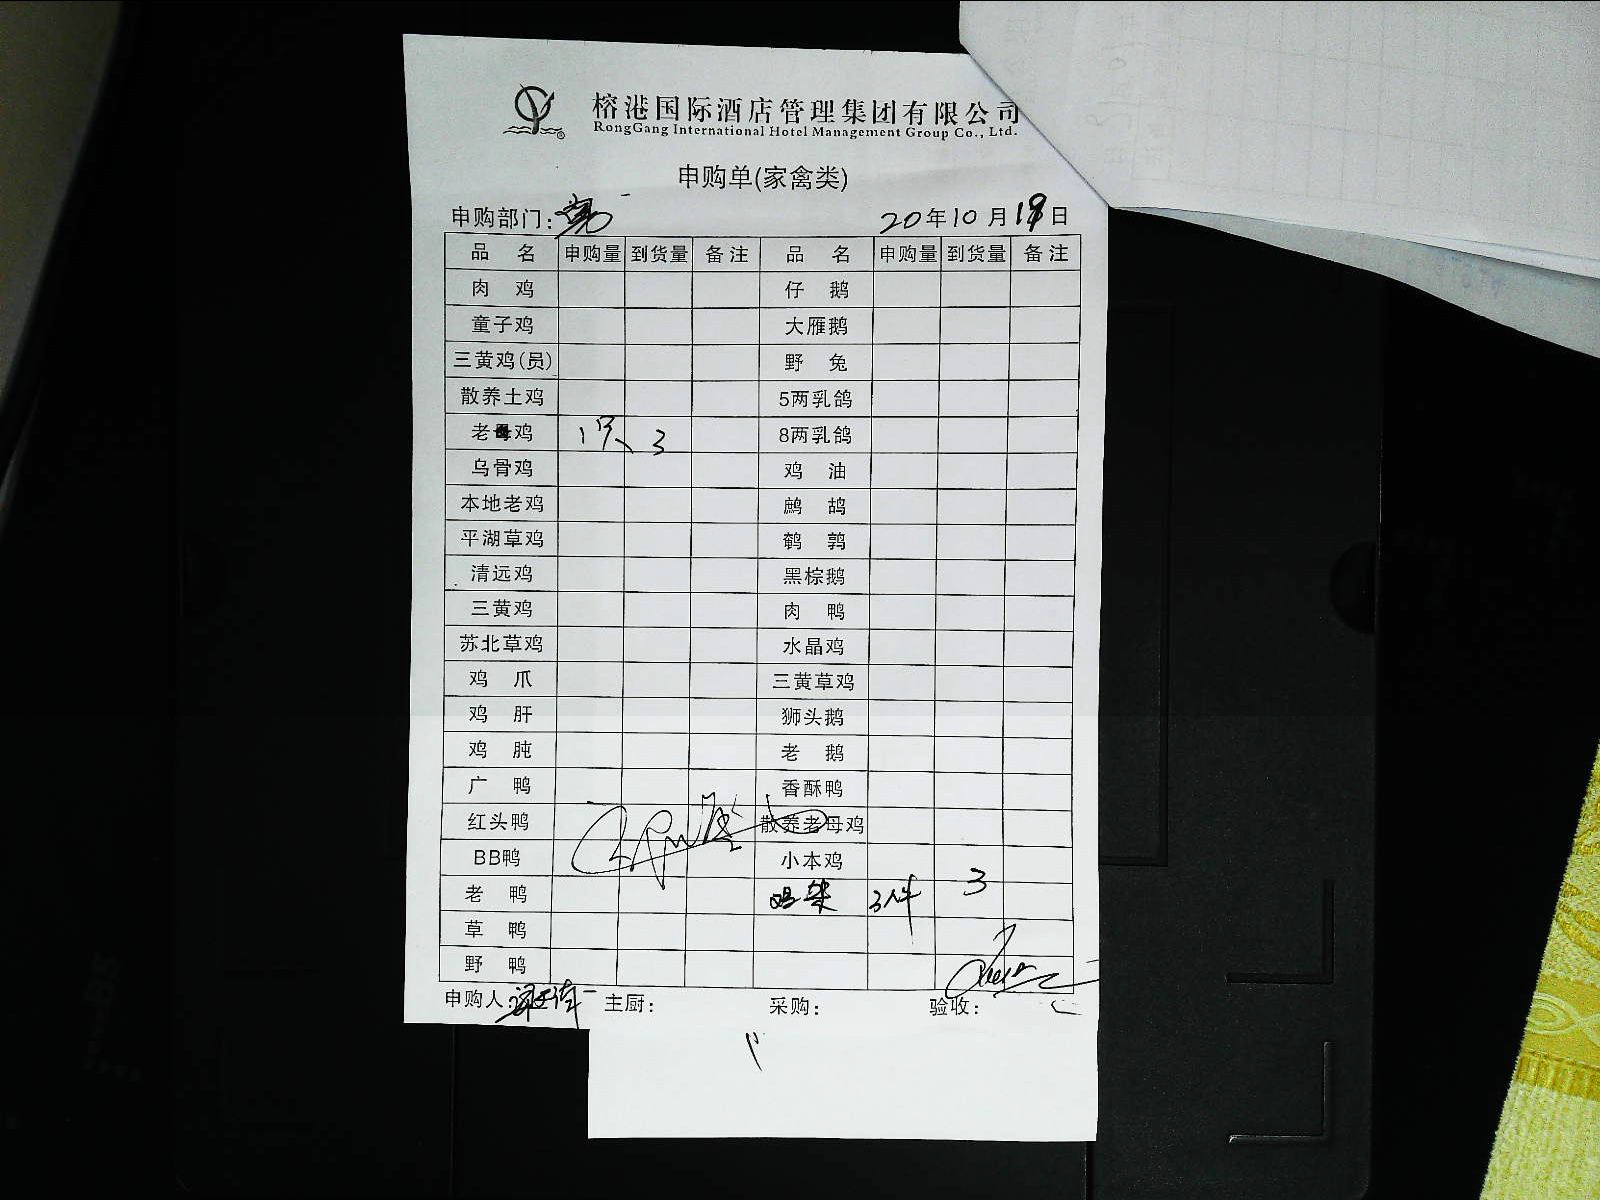 榕港国际酒店管理集团有限公司
RongGang International Hotel Management Group Co., Ltd.
申购单(家禽类)
申购部门: 20年10月19日
品 名 申购量 到货量 备注 品 名 申购量 到货量 备注
肉 鸡 仔 鹅
童子鸡 大雁鹅
三黄鸡(员) 野 兔
散养土鸡 5两乳鸽
老母鸡 1只 3 8两乳鸽
乌骨鸡 鸡 油
本地老鸡 鹧 鸪
平湖草鸡 鹌 鹑
清远鸡 黑棕鹅
三黄鸡 肉 鸭
苏北草鸡 水晶鸡
鸡 爪 三黄草鸡
鸡 肝 狮头鹅
鸡 肫 老 鹅
广 鸭 香酥鸭
红头鸭 散养老母鸡
BB鸭 小本鸡
老 鸭 3 3
草 鸭
野 鸭
申购人: 主厨: 采购: 验收: